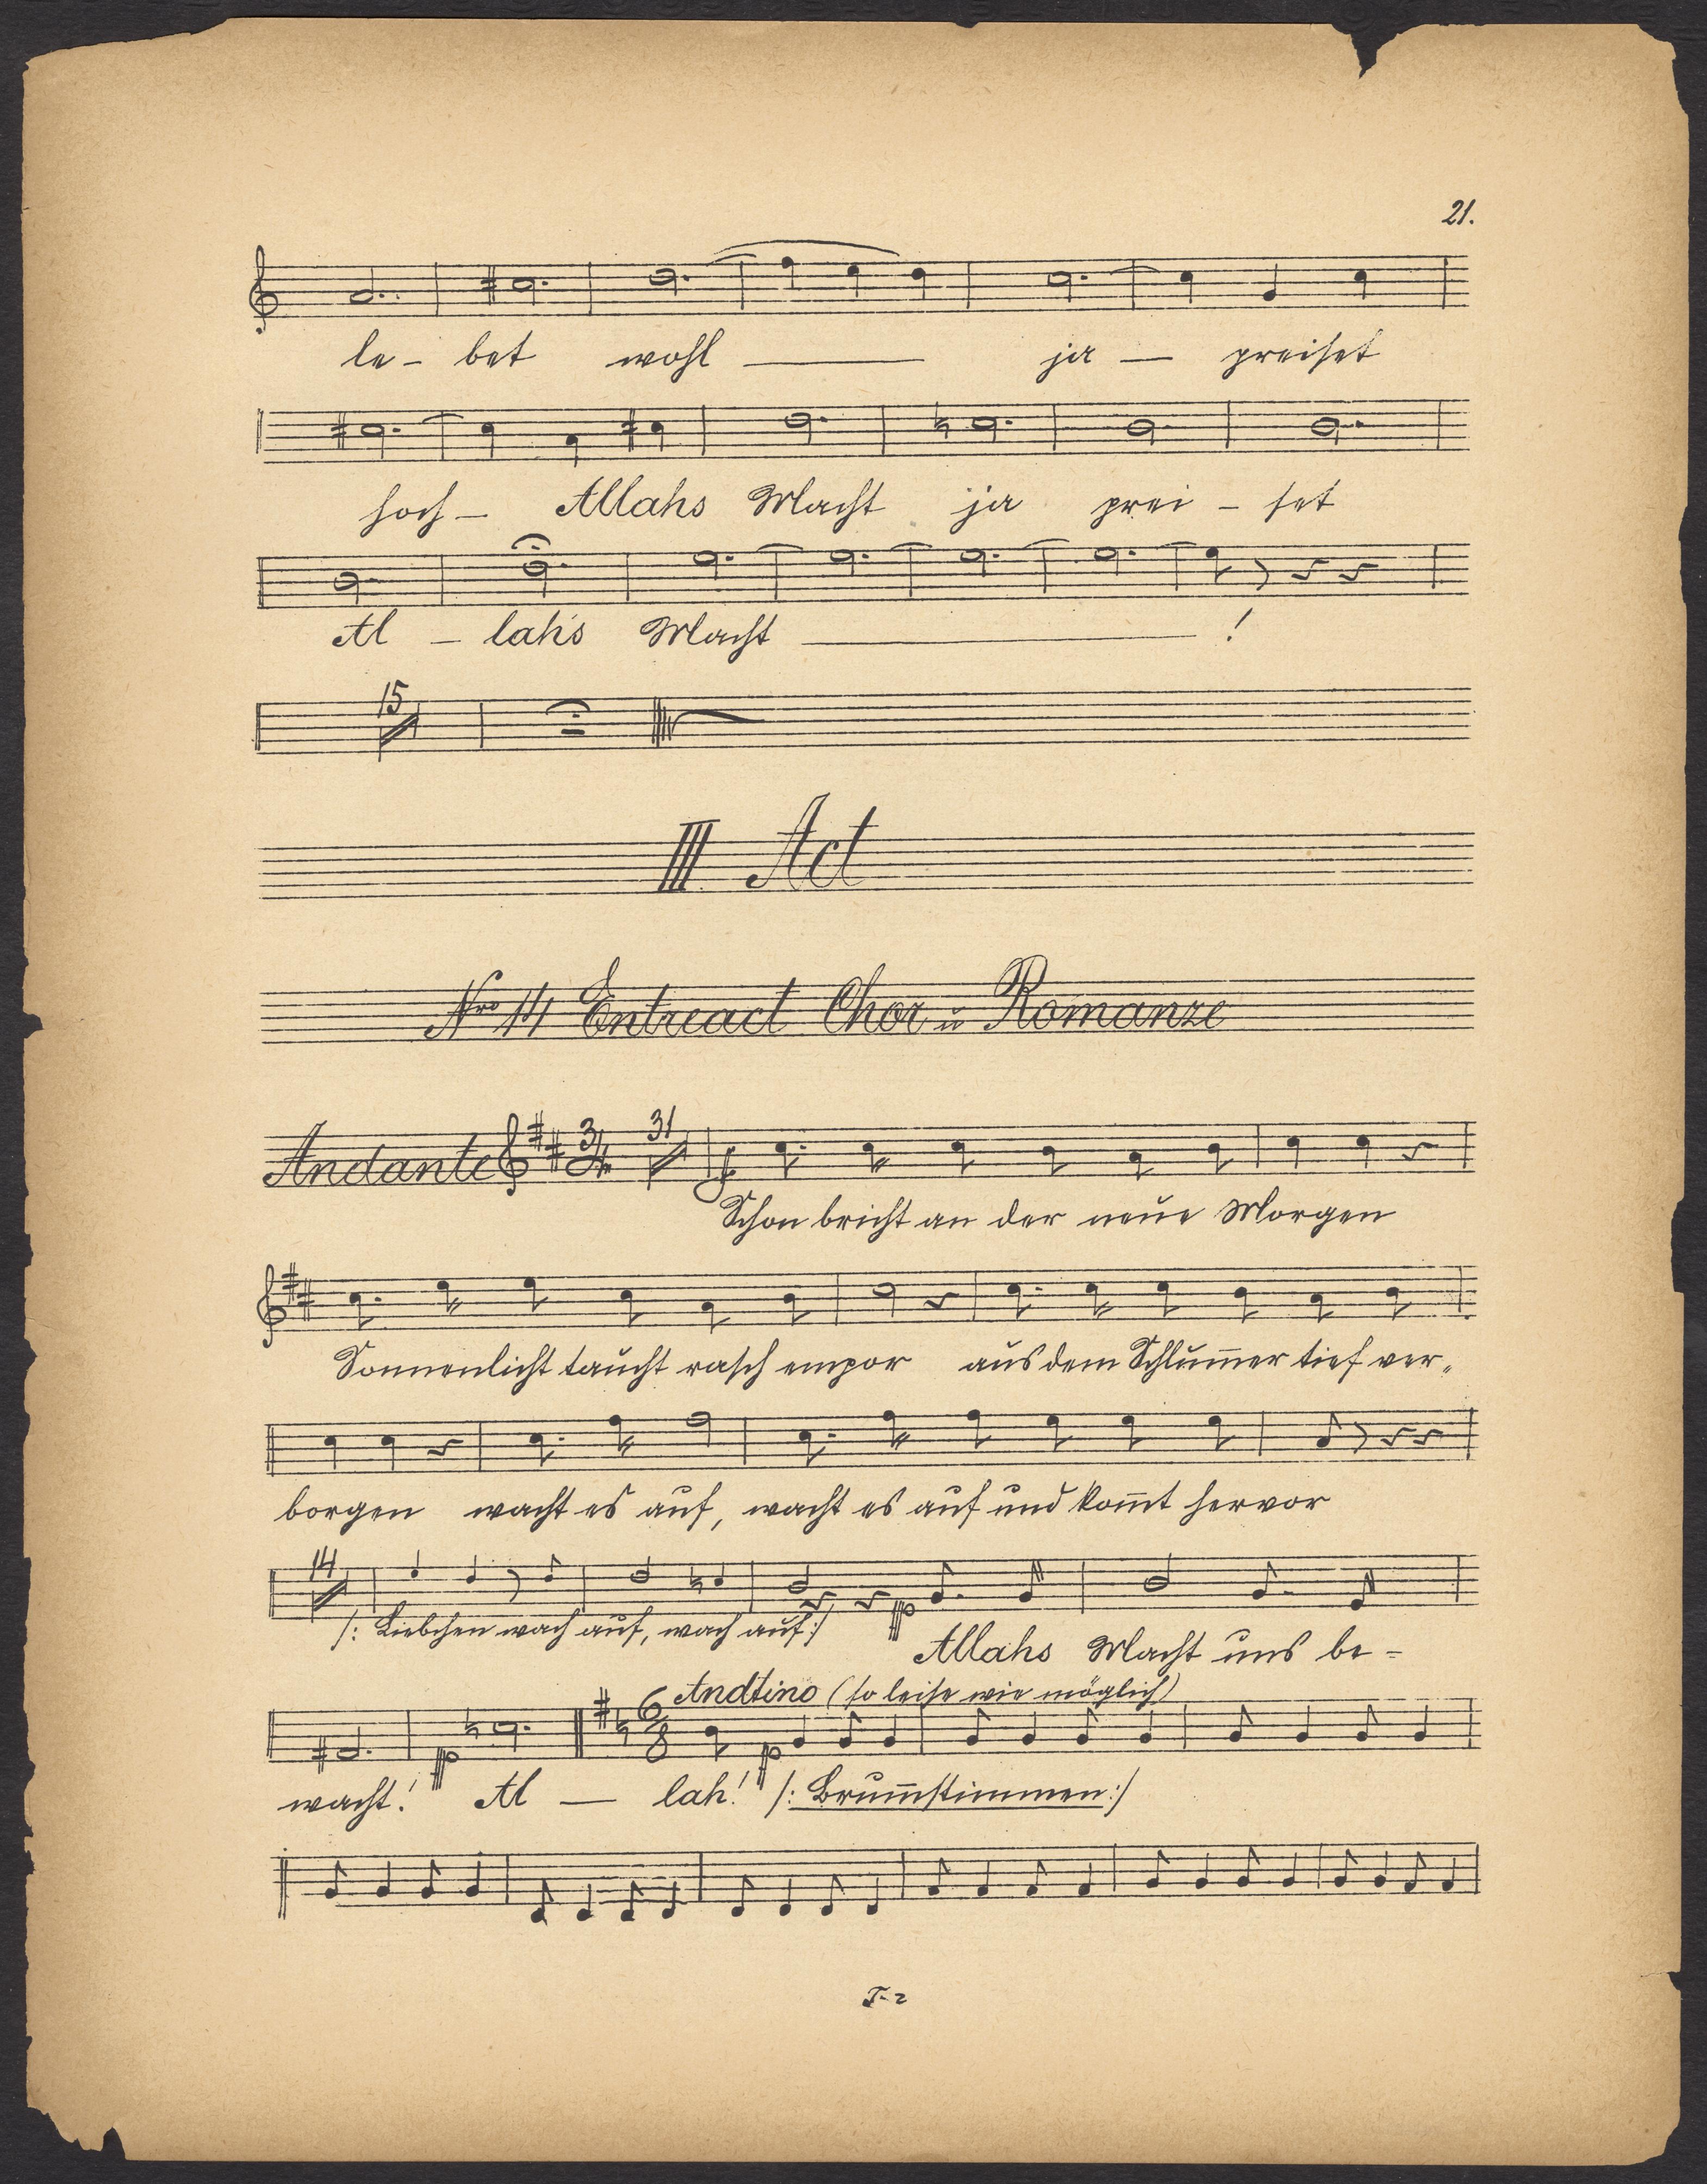 21.
le - bet wohl — ja — preiset
hoch - Allahs Macht ja prei - set
Al - lah's Macht — !
15
III Act
Nro 14 Entreact Chor u Romanze
Andante 3/4 31 f
Schon bricht an der neue Morgen
Sonnenlicht taucht rasch empor aus dem Schlum̅er tief ver-
borgen wacht es auf, wacht es auf und kom̅t hervor
14
/: Liebchen wach auf, wach auf :/ pp Allahs Macht uns be-
Andtino (so leise wie möglich)
6/8
wacht! pp Al — lah! pp /: Brum̅stimmen :/
T-2